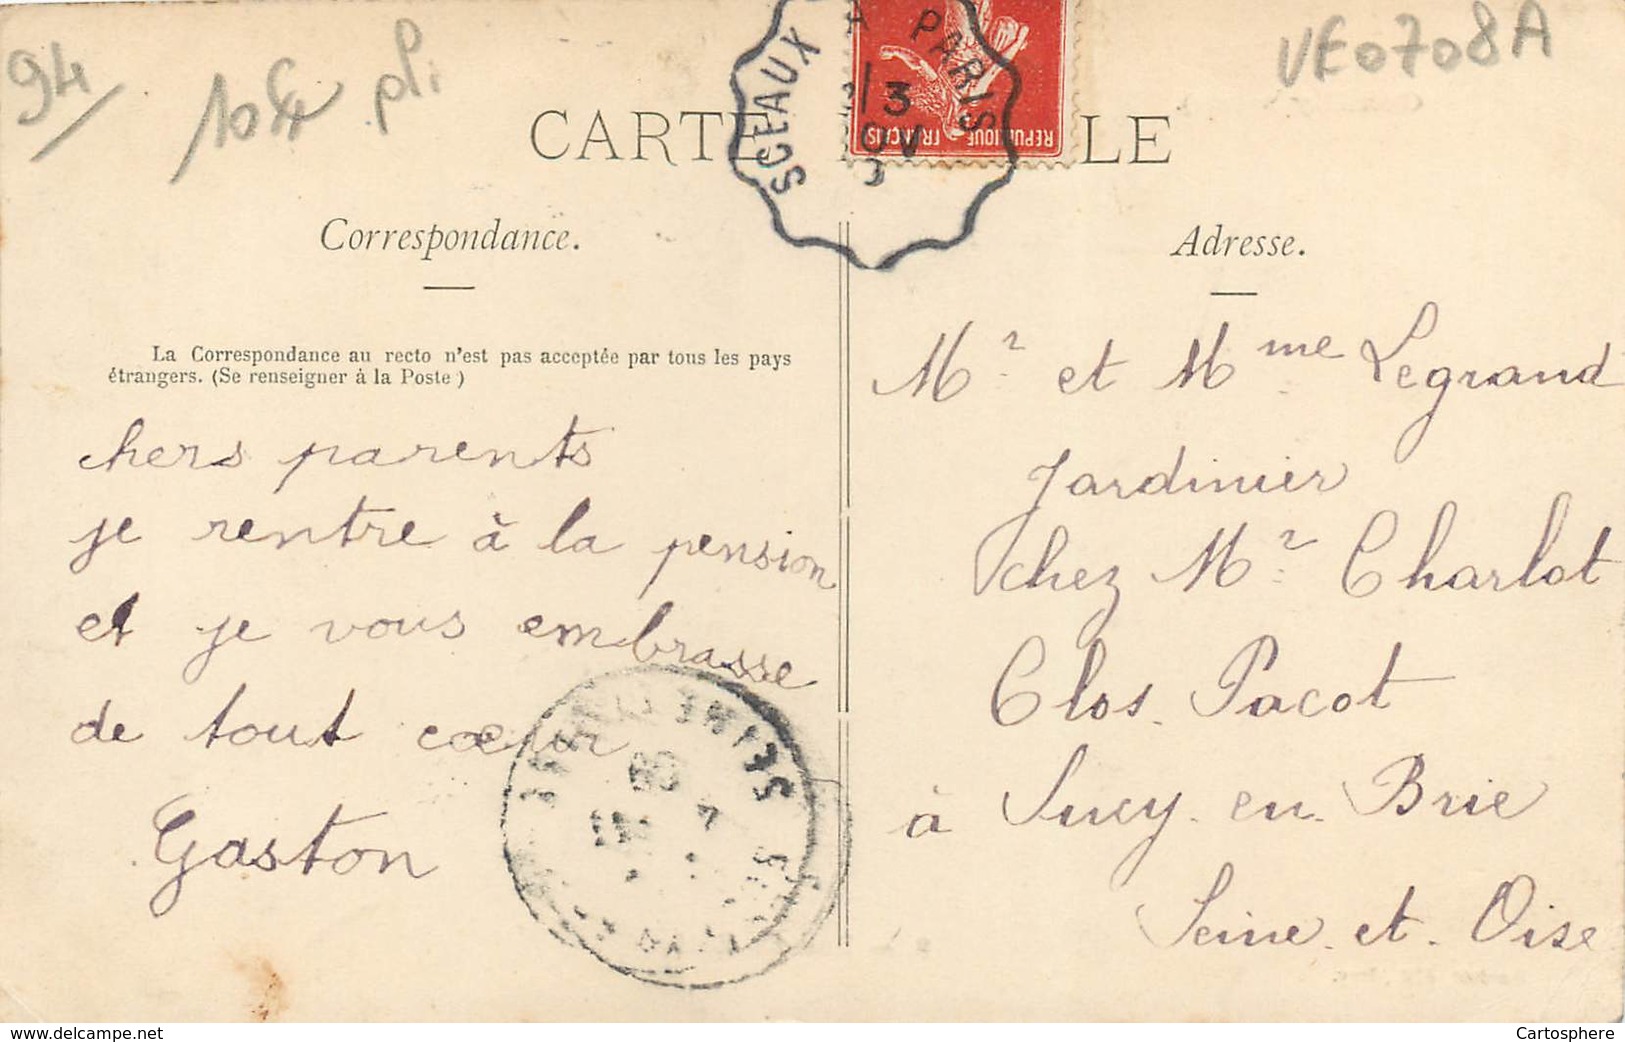 94
VE0708A
CARTE
LE
SCEAUX A PARIS
3
REPUBLIQUE
FRANÇAISE
Correspondance.
La Correspondance au recto n'est pas acceptée par tous les pays
étrangers. (Se renseigner à la Poste)
chers parents
je rentre à la pension
et je vous embrasse
de tout cœur
Gaston
Adresse.
Mr et Mme Legrand
Jardinier
chez Mr Charlot
Clos Pacot
à Sucy en Brie
Seine et Oise
www.delcampe.net
Cartosphere